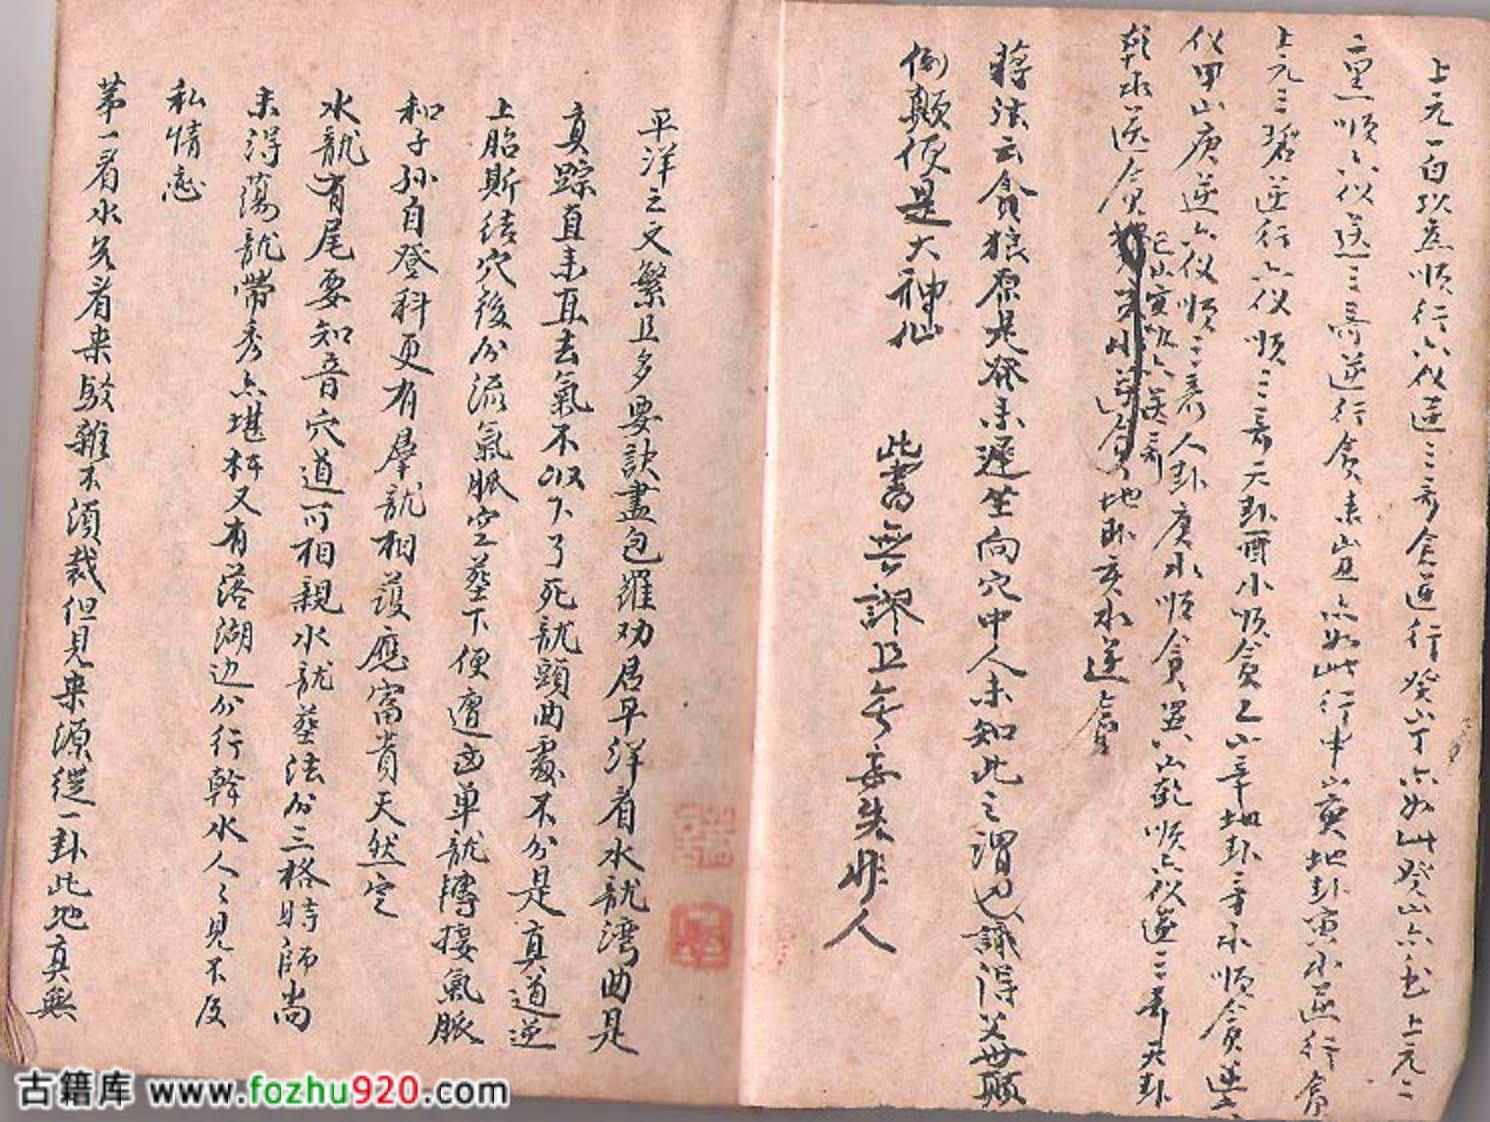 上元一白坎爻順行六仪逆三奇貪逆行癸山丁亦如此癸山亦
上元二
二黑順六仪逆三奇逆行貪未山丑亦如此行申山寅地卦寅水逆行貪
上元三碧逆行六仪順三奇天卦酉水順貪乙山辛地卦辛水順貪逆六
仪甲山庚逆六仪順三奇人卦庚水順貪巽山乾順六仪逆三奇天卦
乾水逆貪
巳山亥順六逆奇
地卦亥水逆貪
蔣法云貪狼原是發未遲坐向穴中人未知此之謂也識得父母顛
倒顛便是大神仙　此書無謬且無妄失非人
平洋之文繁且多要訣盡包羅功居平洋看水龍灣曲是
真踪直来直去氣不收下了死龍頭曲處不分是真道逆
上胎斯結穴後分流氣脈空葬下便遭凶单龍轉接氣脈
和子孙自登科更有羣龍相護應富貴天然定
水龍有尾要知音穴道可相親水龍葬法分三格時師尚
未得蕩龍帶秀亦堪杯又有落湖边分行幹水人々見不及
私情恋
苐一看水先看来駁雜不須裁但見来源從一卦此地真無
古籍库 www.fozhu920.com